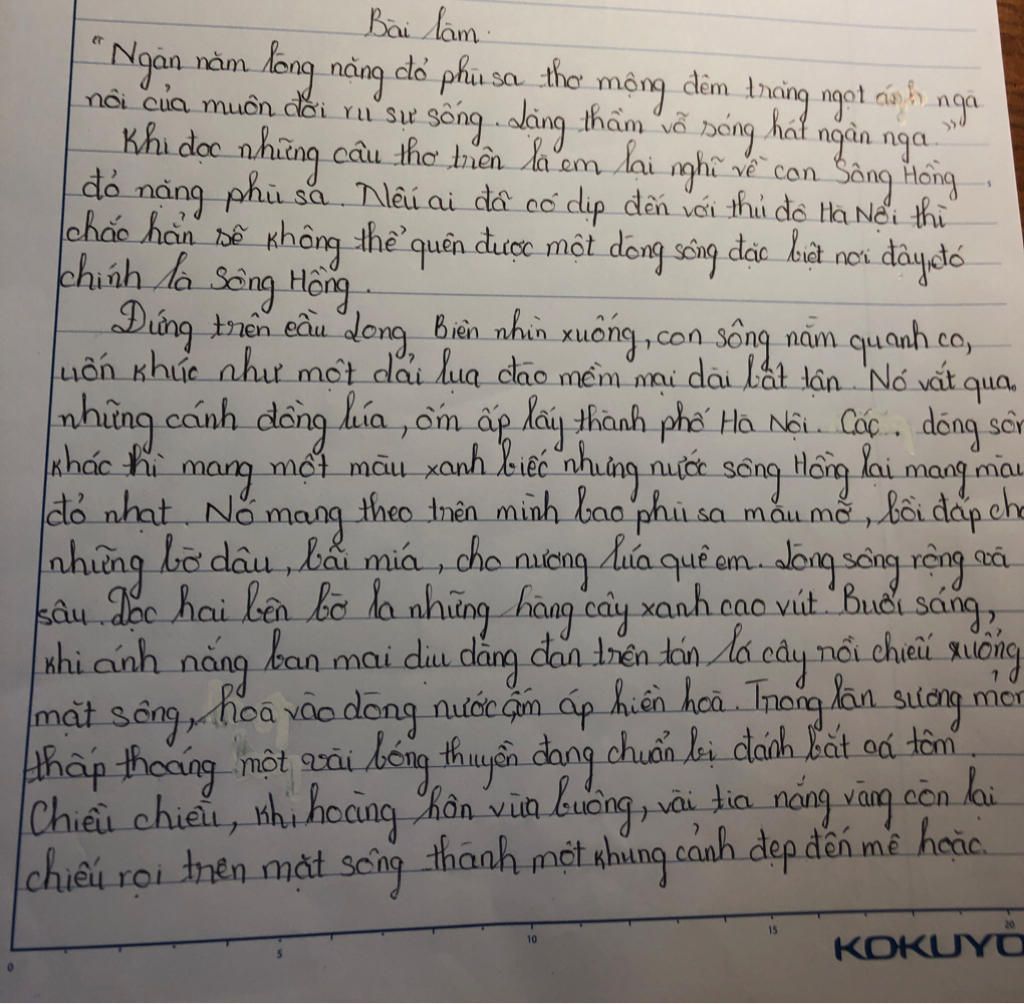 Bài làm.
"Ngàn năm lòng nặng đỏ phù sa thơ mộng đêm trăng ngọt ánh ngà
nôi của muôn đời ru sự sống. Lặng thầm vỗ sóng hát ngân nga"
Khi đọc những câu thơ trên là em lại nghĩ về con Sông Hồng
đỏ nặng phù sa. Nếu ai đã có dịp đến với thủ đô Hà Nội thì
chắc hẳn sẽ không thể quên được một dòng sông đặc biệt nơi đây, đó
chính là Sông Hồng.
Đứng trên cầu Long Biên nhìn xuống, con sông nằm quanh co,
uốn khúc như một dải lụa đào mềm mại dài bất tận. Nó vắt qua
những cánh đồng lúa, ôm ấp lấy thành phố Hà Nội. Các dòng sôn
khác thì mang một màu xanh biếc nhưng nước sông Hồng lại mang màu
đỏ nhạt. Nó mang theo trên mình bao phù sa màu mỡ, bồi đắp cho
những bờ dâu, bãi mía, cho nương lúa quê em. Dòng sông rộng và
sâu. Dọc hai bên bờ là những hàng cây xanh cao vút. Buổi sáng,
khi ánh nắng ban mai dịu dàng đan trên tán lá cây rồi chiếu xuống
mặt sông, hoà vào dòng nước ấm áp hiền hoà. Trong làn sương mờ
thấp thoáng một vài bóng thuyền đang chuẩn bị đánh bắt cá tôm.
Chiều chiều, khi hoàng hôn vừa buông, vài tia nắng vàng còn lại
chiếu rọi trên mặt sông thành một khung cảnh đẹp đến mê hoặc.
0 5 10 15 20
KOKUYO